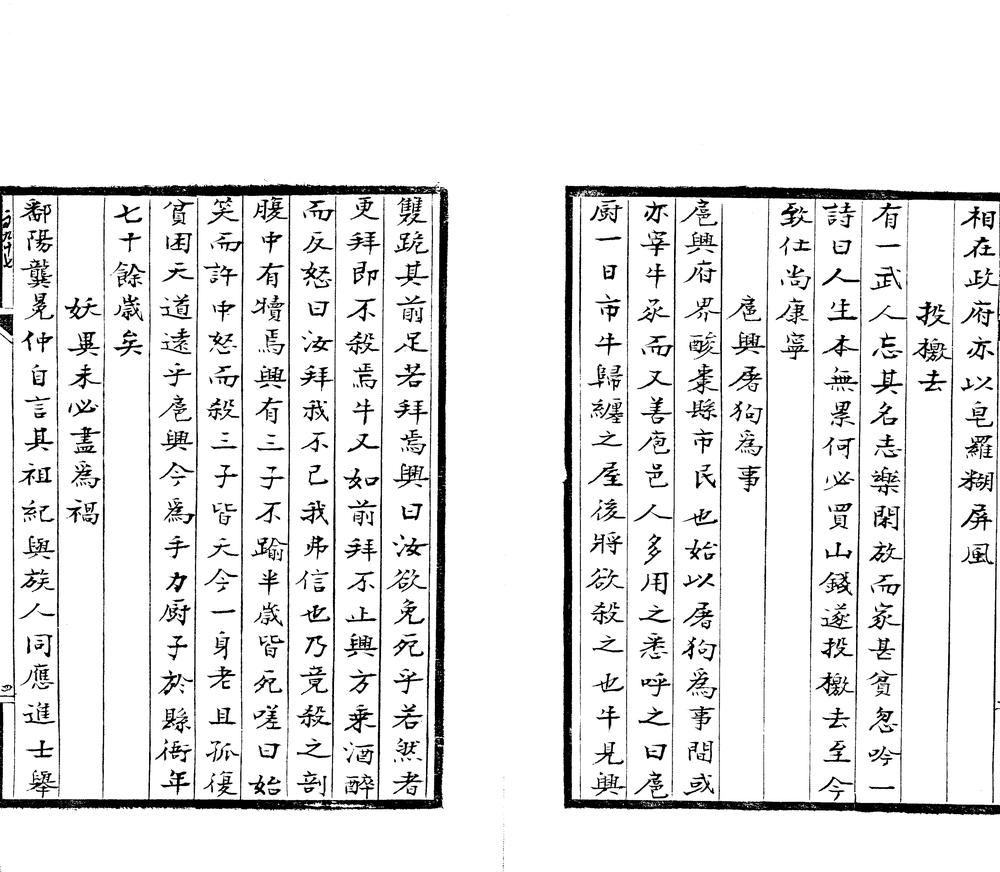 相在政府亦以皂羅糊屏風
投檄去
有一武人忘其名志樂閑放而家甚貧忽吟一
詩曰人生本無累何必買山錢遂投檄去至今
致仕尚康寧
扈興屠狗為事
扈興府界酸棗縣市民也始以屠狗為事間或
亦宰牛豕而又善庖邑人多用之悉呼之曰扈
厨一日市牛歸纏之屋後將欲殺之也牛見興
雙跪其前足若拜焉興曰汝欲免死乎若然者
更拜即不殺焉牛又如前拜不止興方乘酒醉
而反怒曰汝拜我不已我弗信也乃竟殺之剖
腹中有犢焉興有三子不踰半歲皆死嗟曰始
笑而許中怒而殺三子皆夭今一身老且孤復
貧困天道遠乎扈興今為手力厨子於縣衙年
七十餘歲矣
妖異未必盡為禍
鄱陽龔冕仲自言其祖紀與族人同應進士舉
四